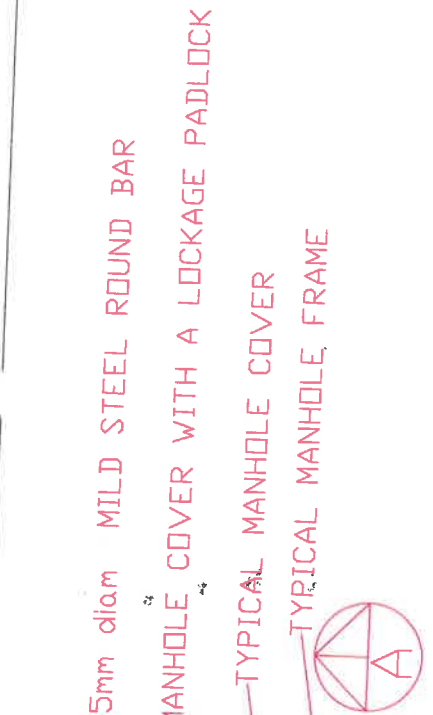 5mm diam MILD STEEL ROUND BAR
MANHOLE COVER WITH A LOCKAGE PADLOCK
TYPICAL MANHOLE COVER
TYPICAL MANHOLE FRAME
A